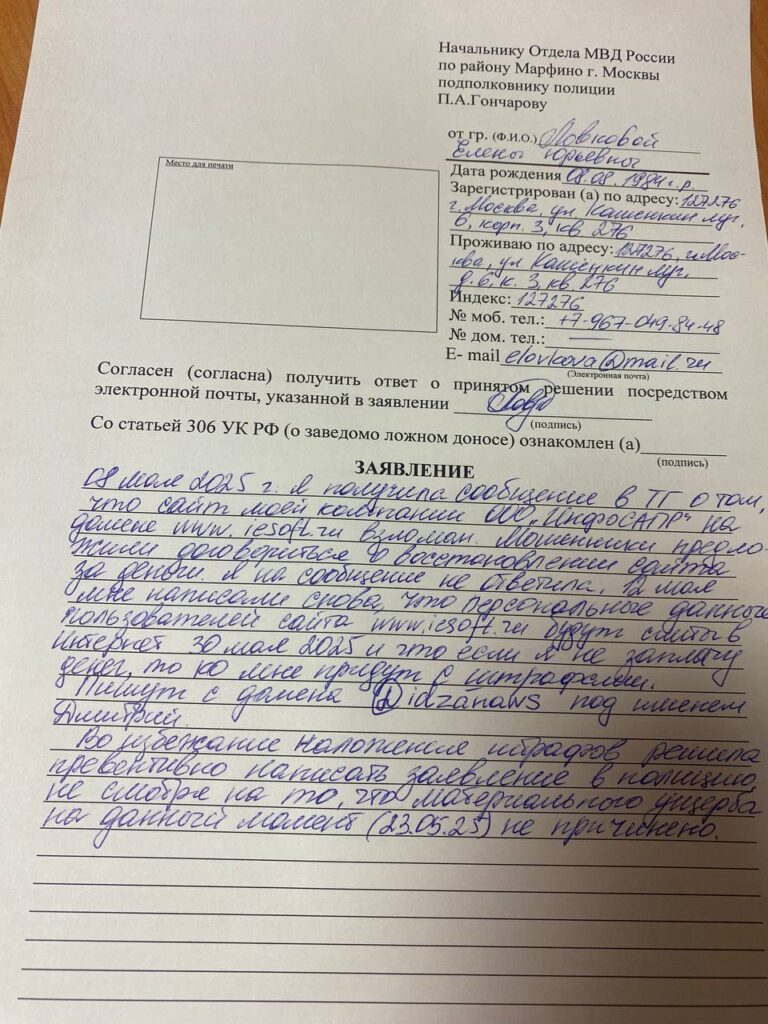 Начальнику Отдела МВД России
по району Марфино г. Москвы
подполковнику полиции
П.А.Гончарову
от гр. (Ф.И.О.) Ловковой
Елены Юрьевны
Место для печати
Дата рождения 08.08.1984 г.р.
Зарегистрирован (а) по адресу: 127276
г. Москва, ул. Кашенкин луг,
6, корп. 3, кв 276
Проживаю по адресу: 127276, г. Мос-
ква, ул Кашенкин луг,
д. 6, к. 3, кв. 276
Индекс: 127276
№ моб. тел.: +7-967-049-84-48
№ дом. тел.: —
E- mail elovkova@mail.ru
(Электронная почта)
Согласен (согласна) получить ответ о принятом решении посредством
электронной почты, указанной в заявлении
(подпись)
Со статьей 306 УК РФ (о заведомо ложном доносе) ознакомлен (а)
(подпись)
ЗАЯВЛЕНИЕ
08 мая 2025 г. я получила сообщение в ТГ о том,
что сайт моей компании ООО "ИнфоСАПР" на
домене www.iesoft.ru взломан. Мошенники предло-
жили договориться о восстановлении сайта
за деньги. Я на сообщение не ответила. 12 мая
мне написали снова, что персональные данные
пользователей сайта www.iesoft.ru будут слиты в
интернет 30 мая 2025 и что если я не заплачу
денег, то ко мне придут с штрафами.
Пишут с домена @idzanaws под именем
Дмитрий.
Во избежание наложения штрафов решила
превентивно написать заявление в полицию,
не смотря на то, что материального ущерба
на данный момент (23.05.25) не причинено.